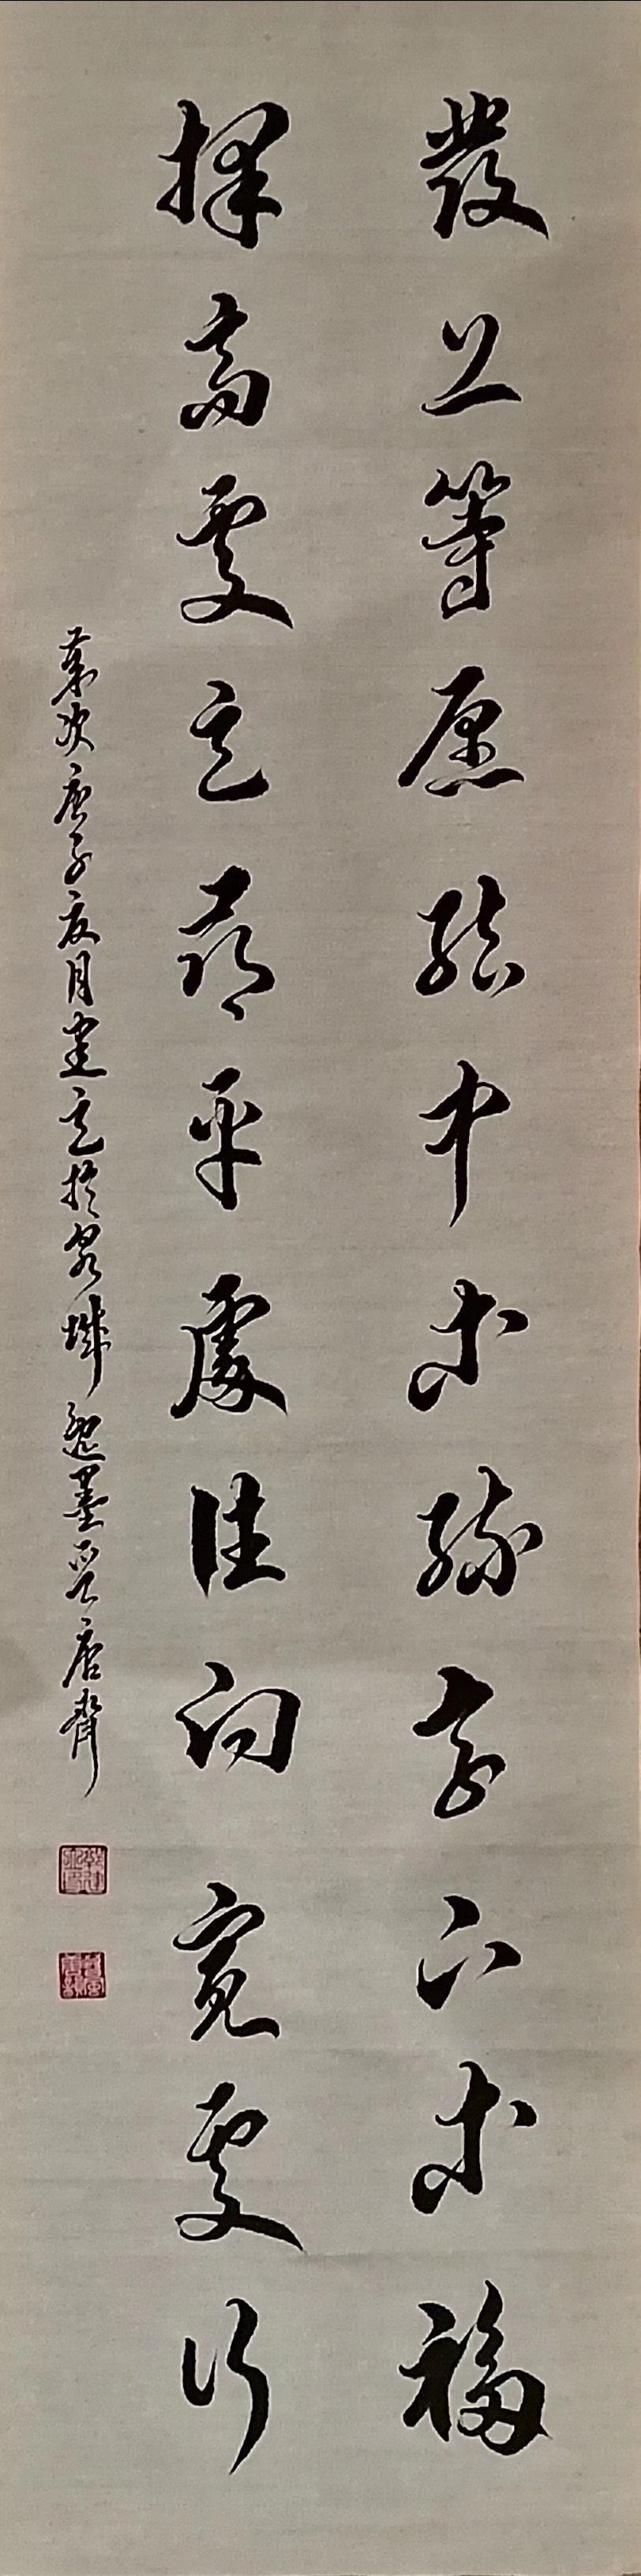 發上等愿結中等緣享下等福
擇高處立尋平處住向寬處行
歲次庚子夏月建立於泉城逸墨居齋